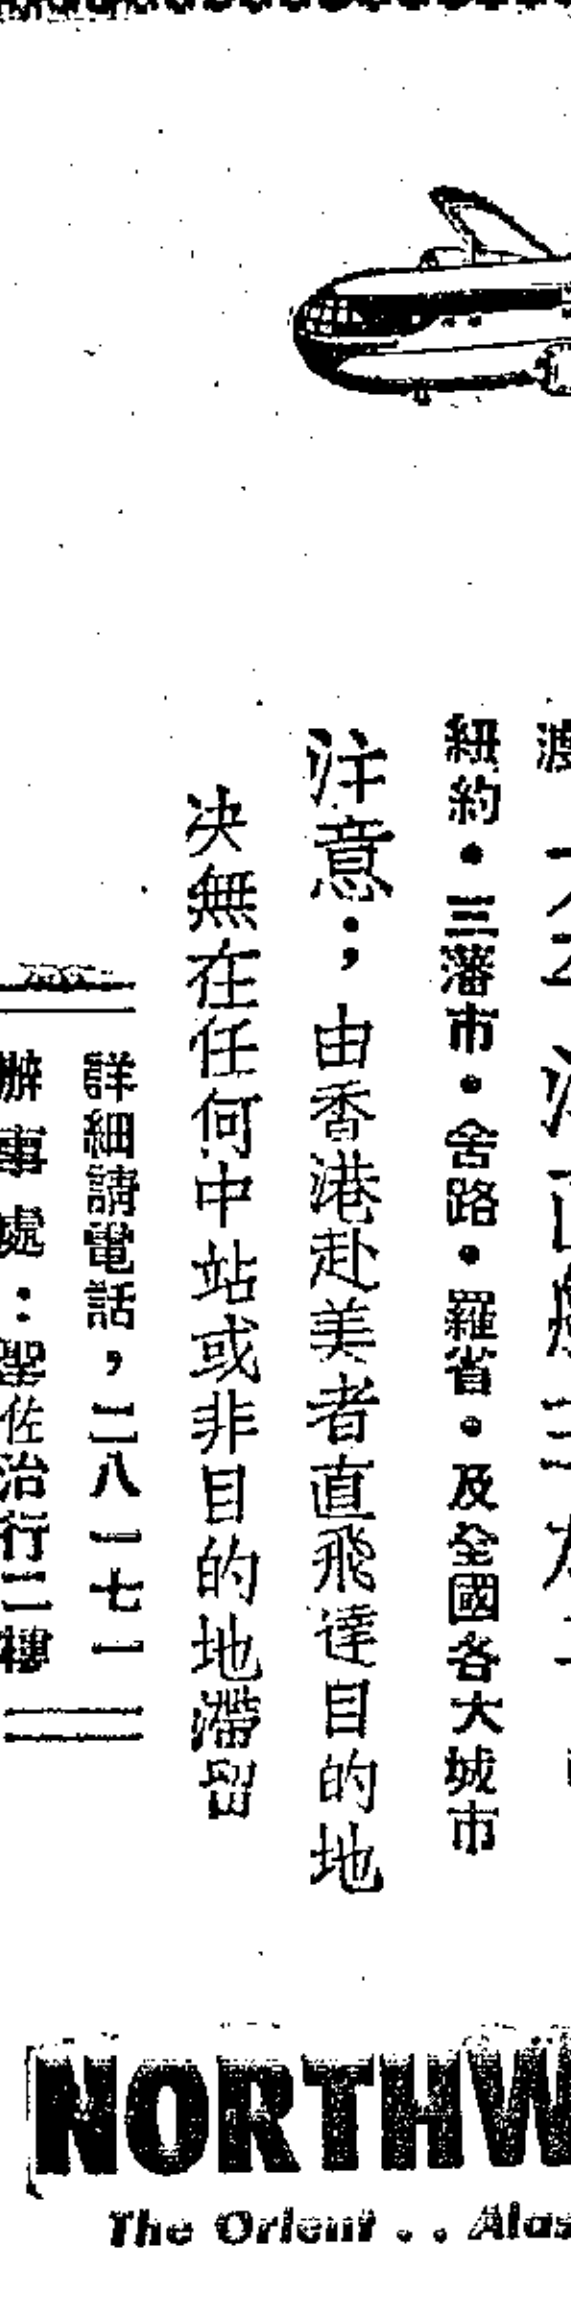 紐約・三藩市・舍路・羅省・及全國各大城市
注意：，由香港赴美者直飛達目的地
决無在任何中站或非目的地滯留
詳細請電話，二八一七一
辦事處：聖佐治行二樓
NORTHW
The Orient . . Alas